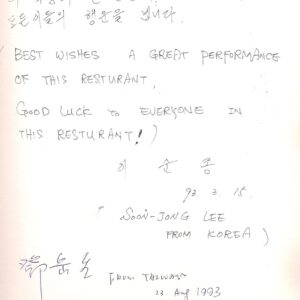 모든이들의 행운을 빕니다.
BEST WISHES A GREAT PERFORMANCE
OF THIS RESTURANT,
GOOD LUCK to EVERYONE IN
THIS RESTURANT!)
이 순 종
93. 3. 15.
(SOON-JONG LEE
FROM KOREA)
FROM TAIWAN
13. Aug 1993